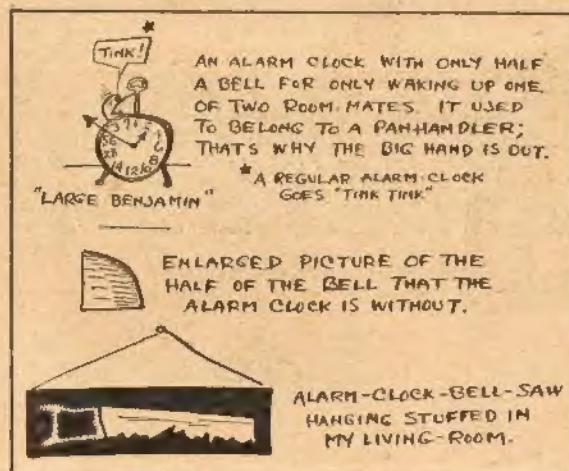 TINK! *
AN ALARM CLOCK WITH ONLY HALF
A BELL FOR ONLY WAKING UP ONE
OF TWO ROOM-MATES. IT USED
TO BELONG TO A PANHANDLER;
THAT'S WHY THE BIG HAND IS OUT.
* A REGULAR ALARM-CLOCK
GOES "TINK TINK"
"LARGE BENJAMIN"
ENLARGED PICTURE OF THE
HALF OF THE BELL THAT THE
ALARM CLOCK IS WITHOUT.
ALARM-CLOCK-BELL-SAW
HANGING STUFFED IN
MY LIVING-ROOM.